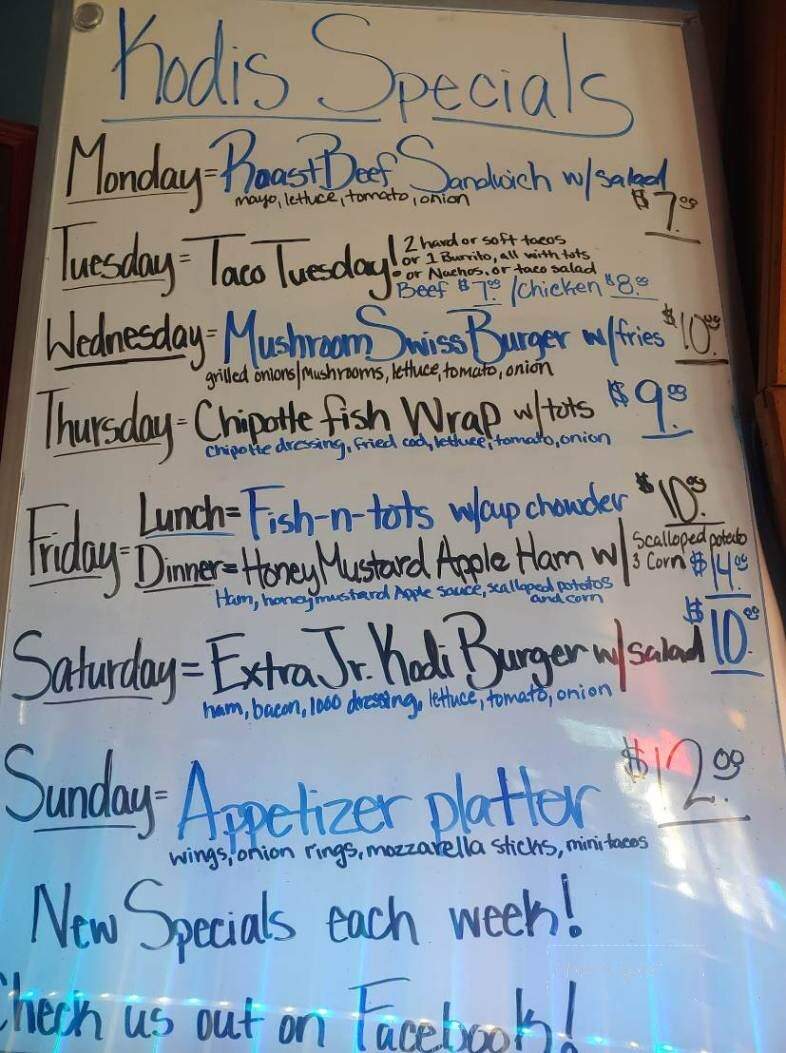 Kodis Specials
Monday= Roast Beef Sandwich w/salad
mayo, lettuce, tomato, onion
$7.00
Tuesday= Taco Tuesday!
2 hard or soft tacos
or 1 Burrito, all with tots
or Nachos, or taco salad
Beef $7.00 /Chicken $8.00
Wednesday= Mushroom Swiss Burger w/fries $10.00
grilled onions/Mushrooms, lettuce, tomato, onion
Thursday= Chipotle fish Wrap w/tots $9.00
chipotle dressing, fried cod, lettuce, tomato, onion
Friday=
Lunch= Fish-n-tots w/cup chowder $10.00
Dinner= Honey Mustard Apple Ham w/
Scalloped potato
& Corn $14.00
Ham, honey mustard Apple sauce, scalloped pototos
and corn
Saturday= Extra Jr. Kodi Burger w/salad $10.00
ham, bacon, 1000 dressing, lettuce, tomato, onion
Sunday= Appetizer platter $12.00
wings, onion rings, mozzarella sticks, mini tacos
New Specials each week!
Check us out on Facebook!